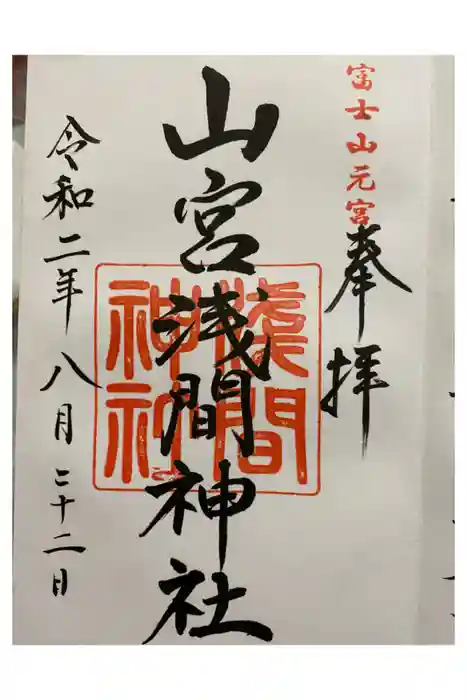 富士山元宮
奉拝
山宮浅間神社
淺間神社
令和二年八月二十二日